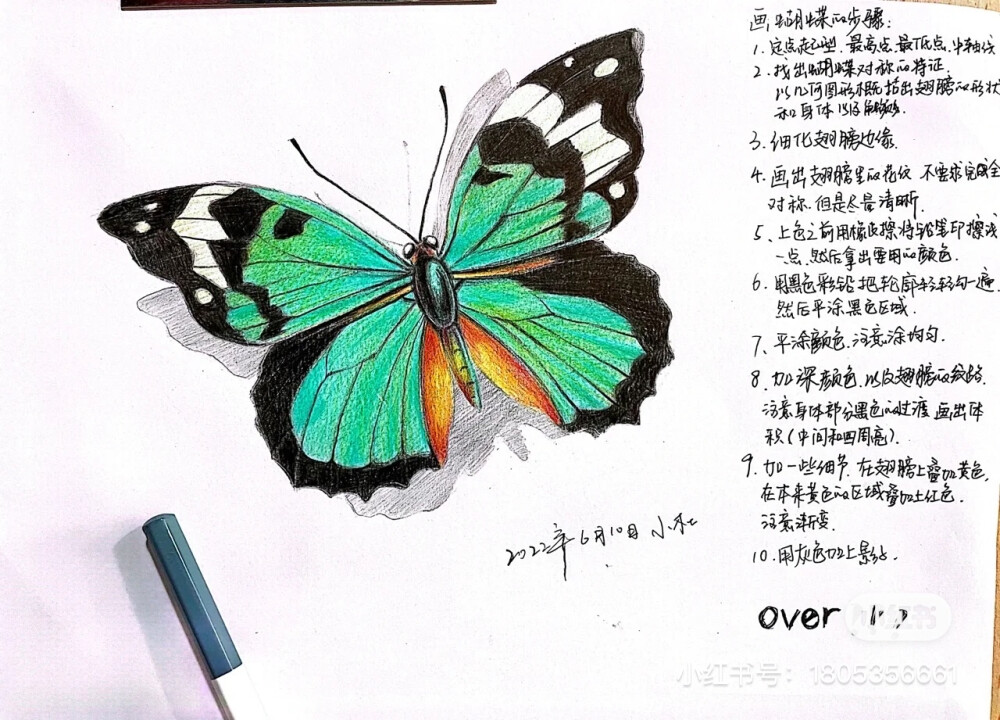 画蝴蝶的步骤:
1. 定点起型. 最高点.最低点.中轴线
2. 找出蝴蝶对称的特征.
以几何图形概括出翅膀的形状
和身体以及触须.
3. 细化翅膀边缘.
4. 画出翅膀里的花纹 不要求完全
对称. 但是尽量清晰.
5. 上色之前用橡皮擦将铅笔印擦浅
一点. 然后拿出要用的颜色.
6. 用黑色彩铅把轮廓轻轻勾一遍.
然后平涂黑色区域.
7. 平涂颜色. 注意涂均匀.
8. 加深颜色. 以及翅膀的纹路.
注意身体部分黑色的过渡 画出体
积(中间和四周亮).
9. 加一些细节. 在翅膀上叠加黄色.
在本来黄色的区域叠加上红色.
注意渐变.
10. 用灰色加上影子.
2022年6月10日 小杜
over
小红书
小红书号: 1805356661